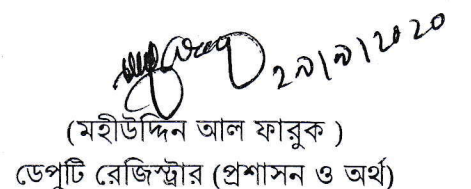 ২৯/৯/২০২০
(মহীউদ্দিন আল ফারুক )
ডেপুটি রেজিস্ট্রার (প্রশাসন ও অর্থ)